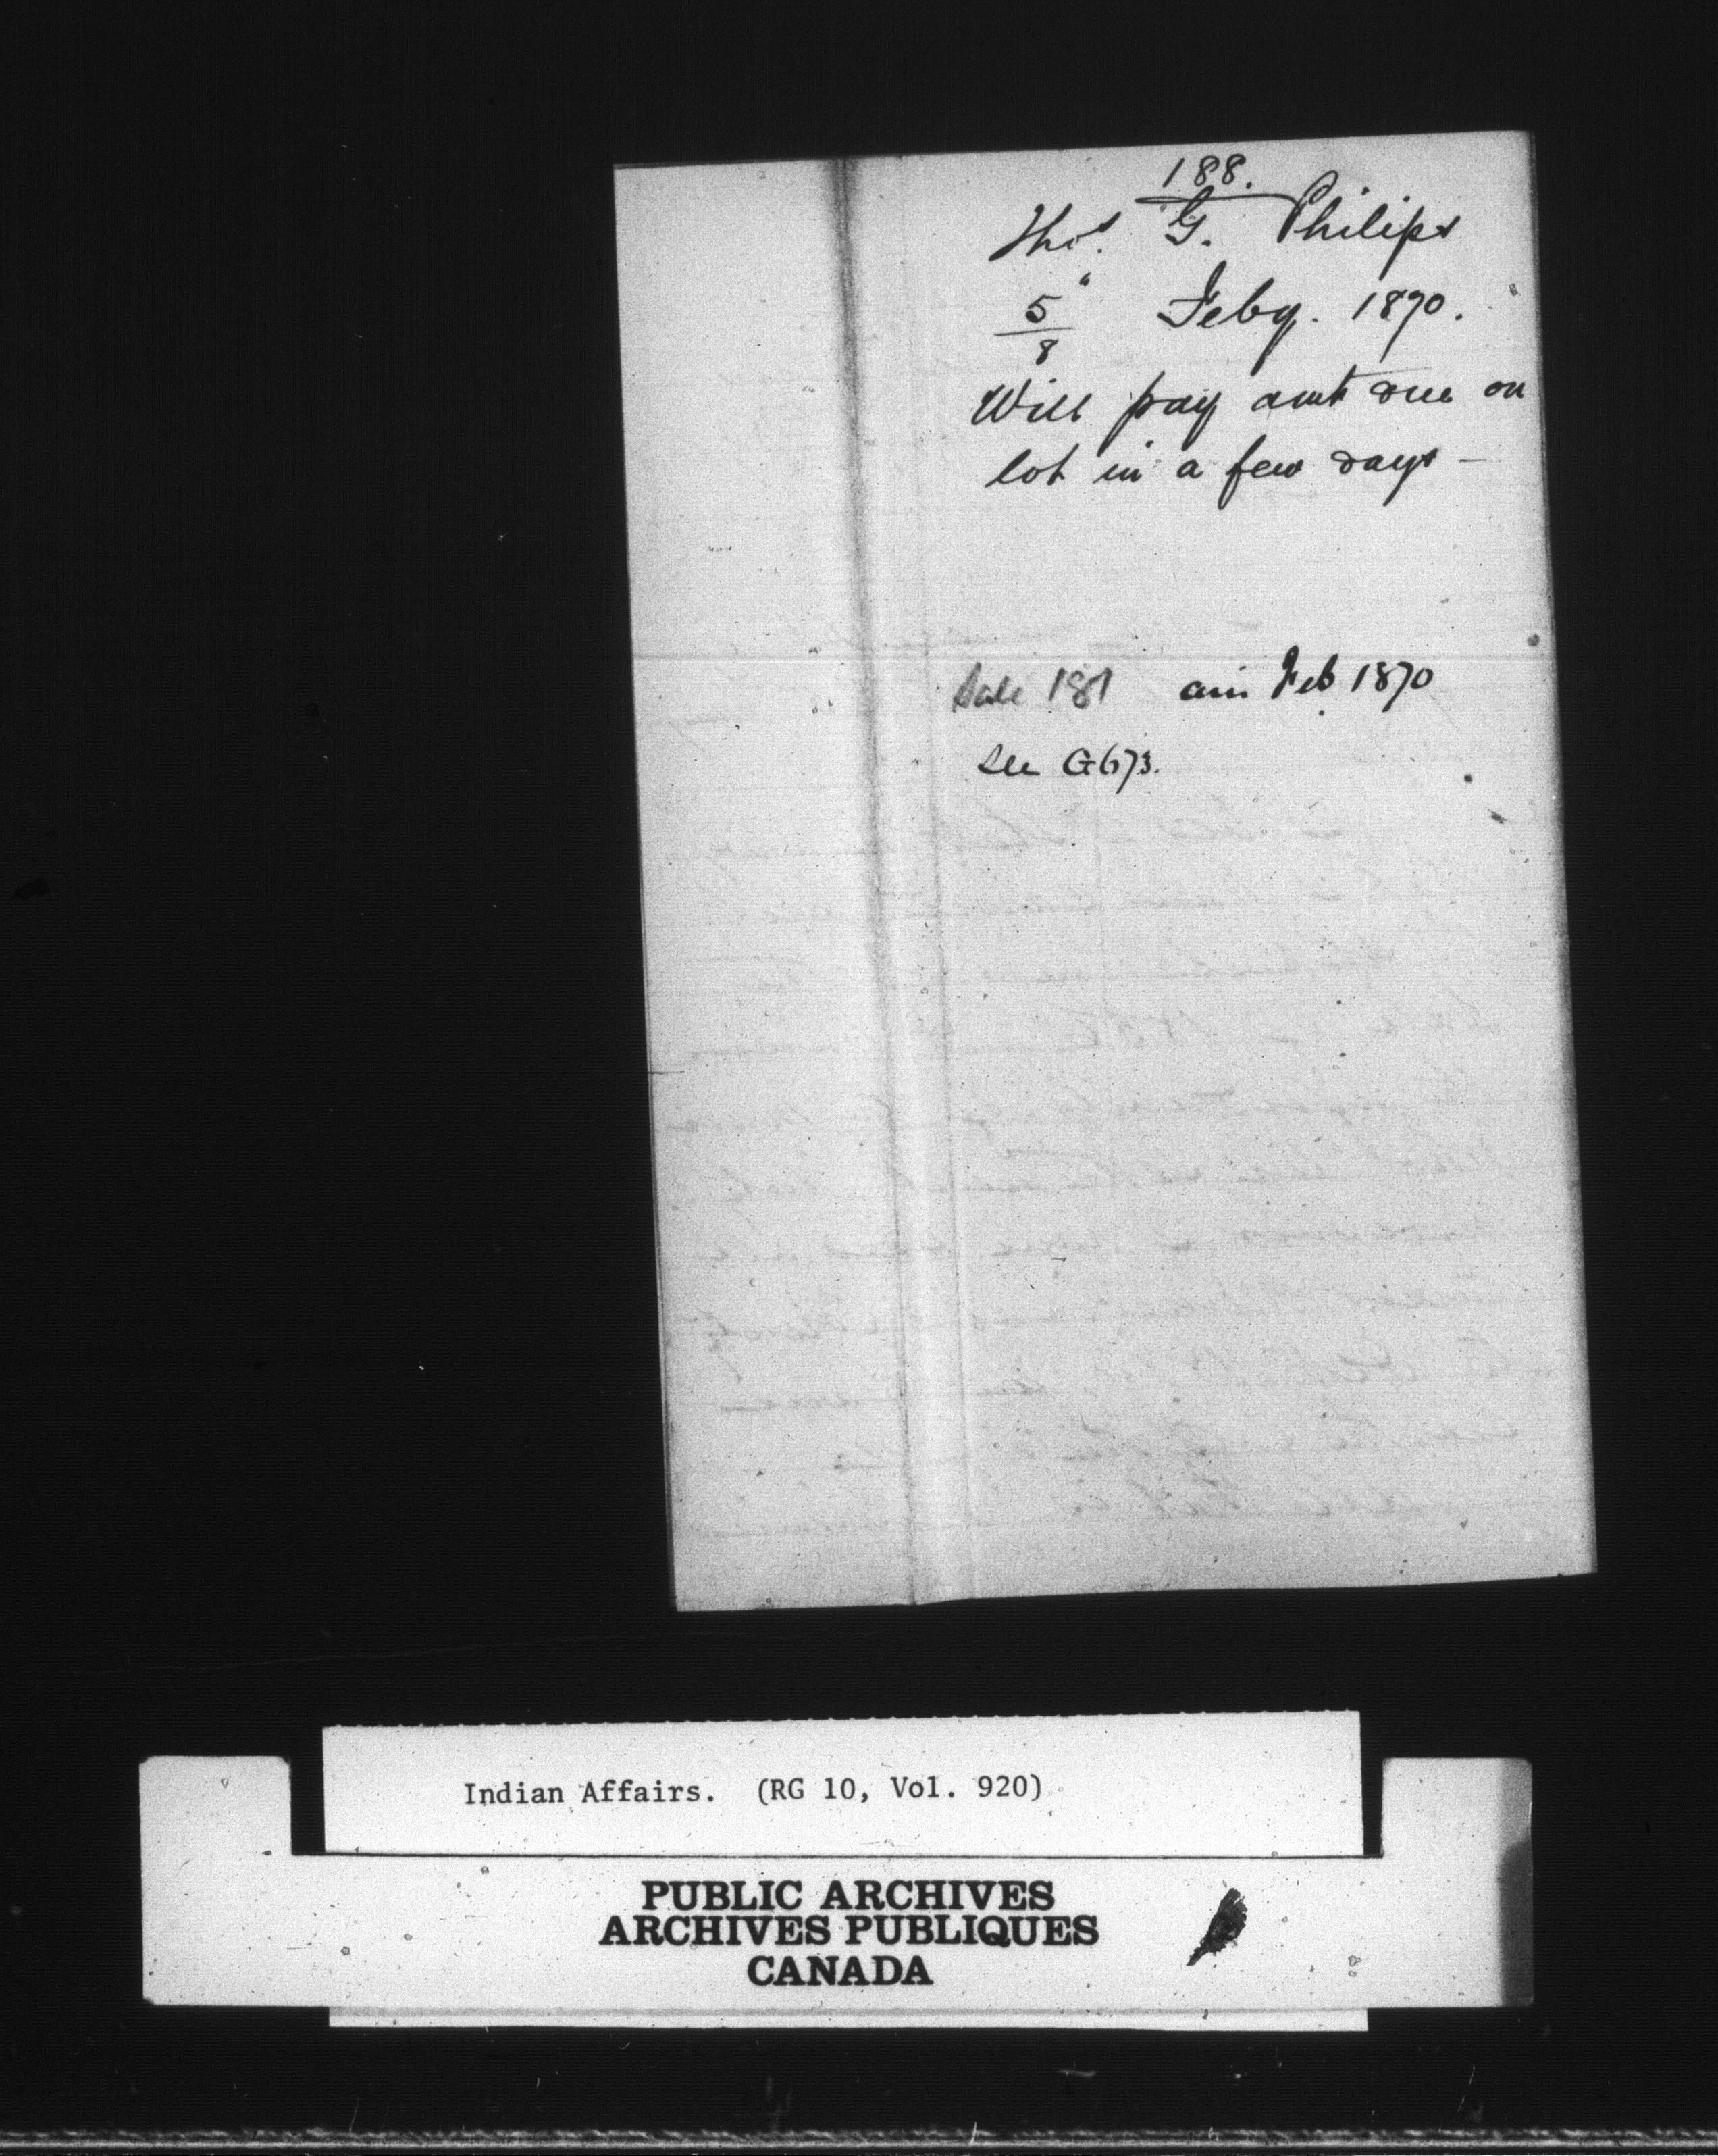 188.
Thos. G. Philips
5" Feby. 1870.
8
Will pay amt due on
lot in a few days —
Sale 181 Feb 1870
See G673.
Indian Affairs. (RG 10, Vol. 920)
PUBLIC ARCHIVES
ARCHIVES PUBLIQUES
CANADA